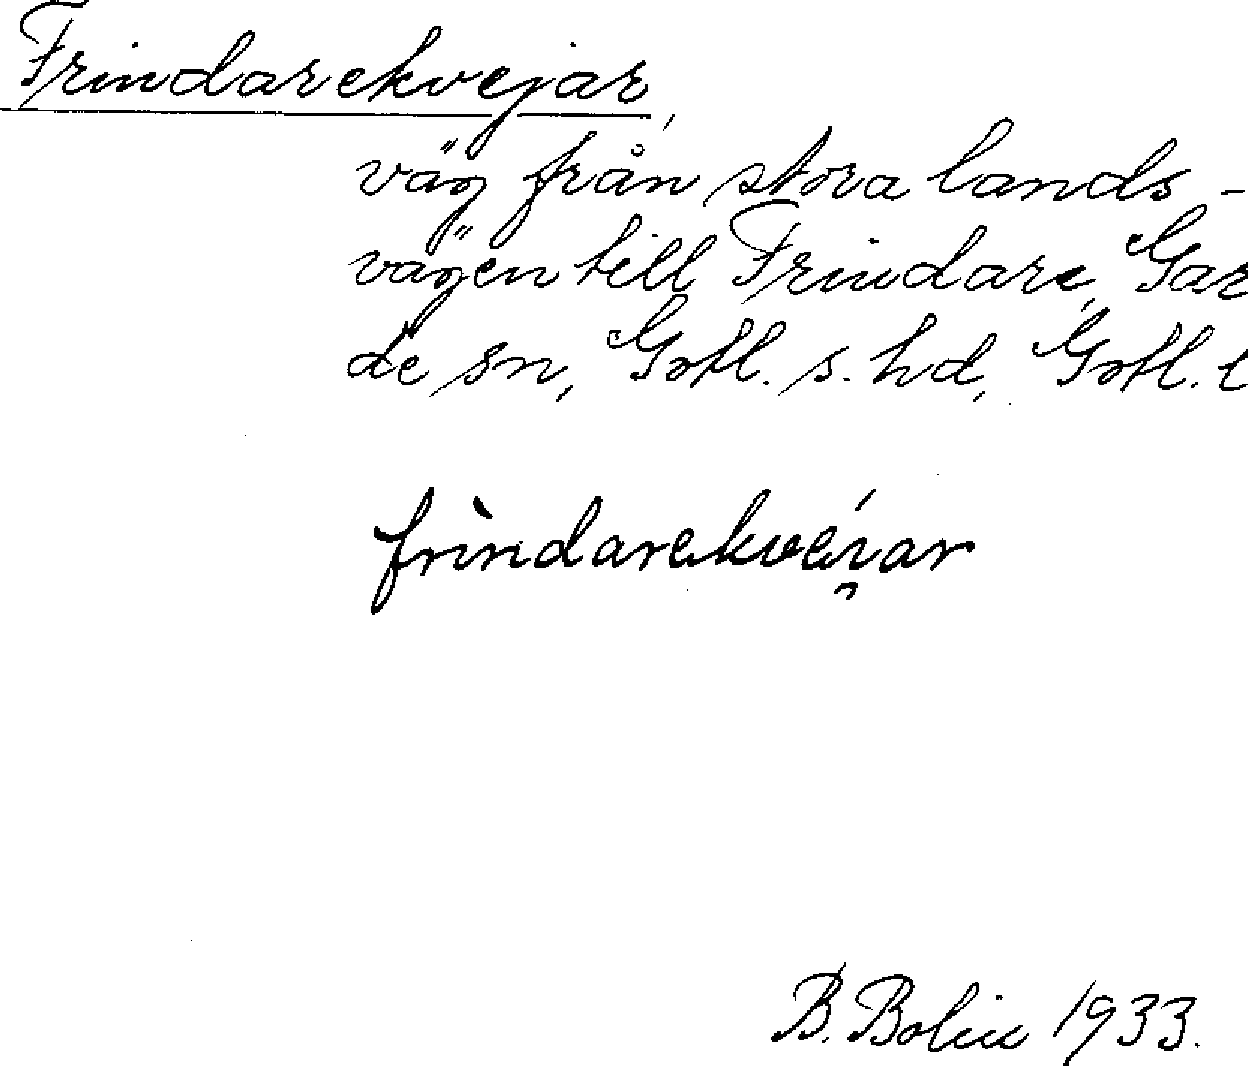 Frindarekvejar,
väg från stora lands-
vägen till Frindare, Gar
de sn, Gotl. s. hd, Gotl. l
frìndarekvéi̯ar
B. Bolin 1933.